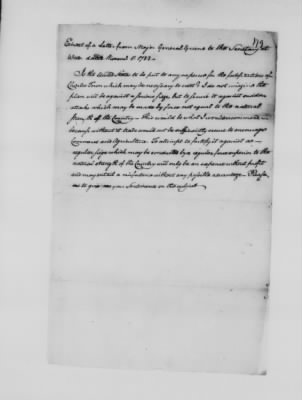 179
Extract of a Letter from Major General Greene to the Secretary at
War dated November 11. 1782.
Is the United States to be put to any expence for the fortifications of
Charles Town which may be necessary to erect? I am not
place will be against a serious siege, but to secure it against sudden
attacks which may be made by force not equal to the natural
strength of the Country - This would be what I would recommend
because without it trade would not be sufficiently secure to encourage
Commerce and Agriculture. To attempt to fortify it against a
regular siege which may be conducted by a regular force superior to the
natural strength of the Country will only be an expence without profit
and may entail a misfortune without any possible advantage. Please
to give me your Sentiments on this subject.